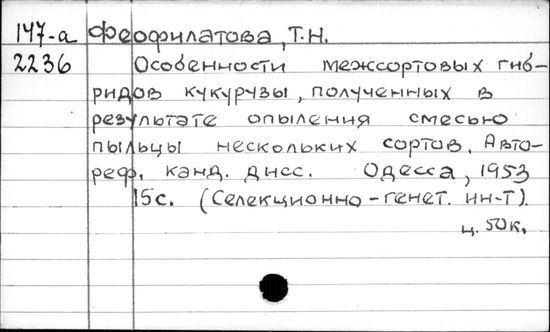 147-а Феофилатова, Т.Н.
2236 Особенности межсортовых гиб-
ридов кукурузы, полученных в
результате опыления смесью
пыльцы нескольких сортов. Авто-
реф. канд. дисс. Одесса, 1953
15с. (Селекционно-генет. ин-т).
ц. 50к.